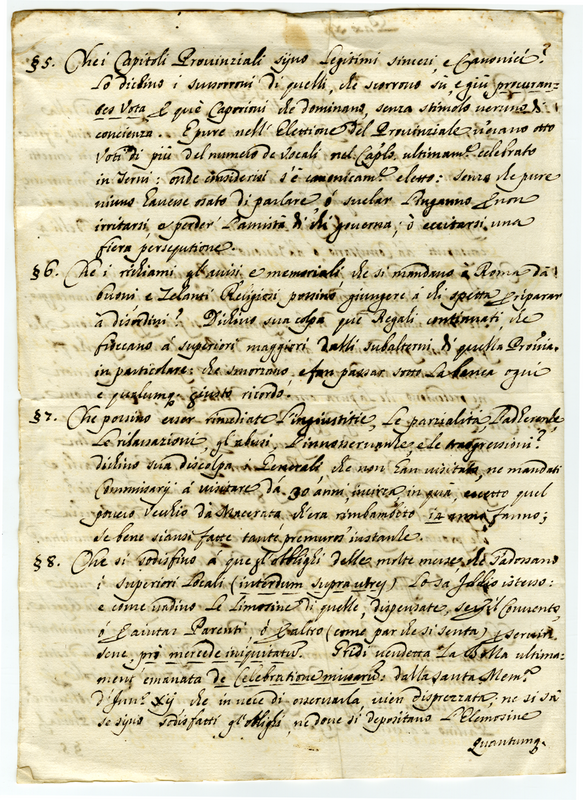 § 5. Che i Capitoli Provinziali sijno legitimi sinceri, e Canonici?
Lo dichino i sussorroni di quelli, che scorrono sù, e giù procuran-
do Vota que Caporioni che dominano, senza stimolo veruno di
concienza. Epure nell'Elettione del Provinziale v'erano otto
Voti di più del numero de Vocali nel Cap.lo ultimam.te celebrato
in Terni: onde considerisi s'è canonicam.te eletto: senza che pure
niuno havesse osato di parlare ò svelar l'inganno non
irritarsi, e perder l'amistà di chi governa, ò eccitarsi una
fiera persegutione.
§ 6. Che i richiami gl'avisi e memoriali che si mandano à Roma dà
buoni e Zelanti Religiosi possino giungere à chi spetta riparar
à disordini? Dichino sua colpa que Regali continuati, che
fioccano à superiori maggiori dalli subalterni di quella Prov.ia
in particolare: che smorzano, e fan passar sotto la banca ogni
e qualumq. giusto ricordo!
§ 7. Che possino esser rimediate l'ingiustitie, le parzialità, l'adherenze,
le rilassazioni, gl'abusi, l'innosservanze, e le trasgressioni?
dichino sua discolpa i Generali che non l'an visitata, ne mandati
Commissarij à visitare dà 30 anni in quà, eccetto quel
povero Vecchio da Macerata, ch'era rimbambito 14 anni fanno;
se bene siansi fatte tante premurose instanze.
§ 8. Che si sodisfino à que gl'oblighi delle molte messe, che s'adossano
i superiori locali (interdum supra vires) lo sa Iddio istesso:
e come vadino le limosine di quelle, dispensate, se il Convento,
ò aiutar Parenti ò altro (come par che si senta) servir-
sene prò mercede iniquitatis. Gridi vendetta la Bolla ultima-
mente emanata de Celebratione missarum dalla santa Mem.a
d'Inn.o xij che in vece di osservarla, vien disprezzata, ne si sà
se sijno sodisfatti gl'oblighi, ne dove si depositano l'elemosine
Quantunq.